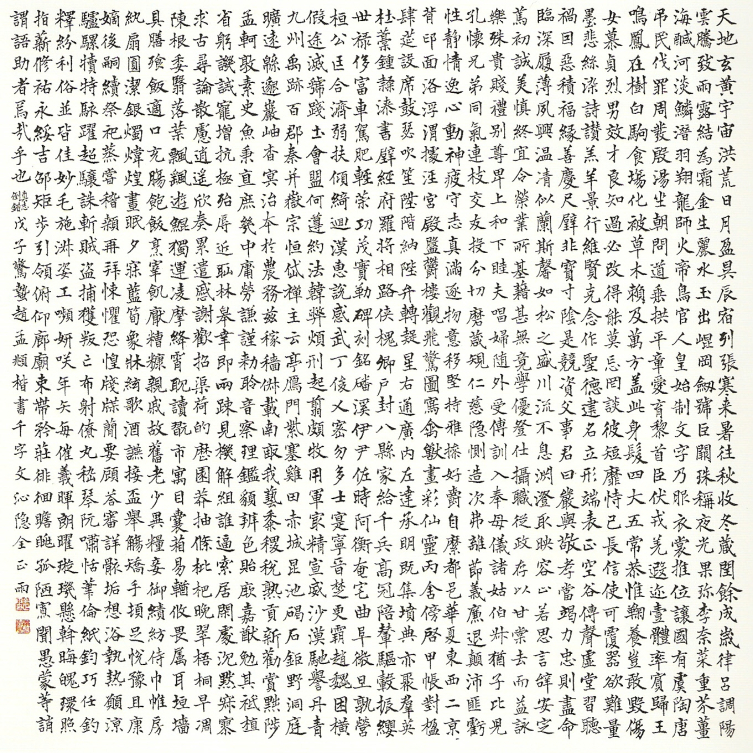 天地玄黃宇宙洪荒日月盈昃辰宿列張寒來暑往秋收冬藏閏餘成歲律呂調陽
雲騰致雨露結為霜金生麗水玉出崐岡劒號巨闕珠稱夜光果珍李柰菜重芥薑
海鹹河淡鱗潛羽翔龍師火帝鳥官人皇始制文字乃服衣裳推位讓國有虞陶唐
弔民伐罪周發殷湯坐朝問道垂拱平章愛育黎首臣伏戎羌遐迩壹體率賓歸王
鳴鳳在樹白駒食場化被草木賴及萬方蓋此身髮四大五常恭惟鞠養豈敢毀傷
女慕貞烈男效才良知過必改得能莫忘罔談彼短靡恃己長信使可覆器欲難量
墨悲絲染詩讚羔羊景行維賢克念作聖德建名立形端表正空谷傳聲虛堂習聽
禍因惡積福緣善慶尺璧非寶寸陰是競資父事君曰嚴與敬孝當竭力忠則盡命
臨深履薄夙興溫凊似蘭斯馨如松之盛川流不息淵澄取映容止若思言辭安定
篤初誠美慎終宜令榮業所基藉甚無竟學優登仕攝職從政存以甘棠去而益詠
樂殊貴賤禮別尊卑上和下睦夫唱婦隨外受傅訓入奉母儀諸姑伯叔猶子比兒
孔懷兄弟同氣連枝交友投分切磨箴規仁慈隱惻造次弗離節義廉退顛沛匪虧
性靜情逸心動神疲守志真滿逐物意移堅持雅操好爵自縻都邑華夏東西二京
背邙面洛浮渭據涇宮殿盤鬱樓觀飛驚圖寫禽獸畫彩仙靈丙舍傍啓甲帳對楹
肆筵設席鼓瑟吹笙陞階納陛弁轉疑星右通廣內左達承明既集墳典亦聚群英
杜稾鍾隸漆書壁經府羅將相路俠槐卿戶封八縣家給千兵高冠陪輦驅轂振纓
世祿侈富車駕肥輕策功茂實勒碑刻銘磻溪伊尹佐時阿衡奄宅曲阜微旦孰營
桓公匡合濟弱扶傾綺迴漢惠說感武丁俊乂密勿多士寔寧晉楚更霸趙魏困橫
假途滅虢踐土會盟何遵約法韓弊煩刑起翦頗牧用軍最精宣威沙漠馳譽丹青
九州禹跡百郡秦并嶽宗恒岱禪主云亭鴈門紫塞雞田赤城昆池碣石鉅野洞庭
曠遠緜邈巖岫杳冥治本於農務茲稼穡俶載南畝我藝黍稷稅熟貢新勸賞黜陟
孟軻敦素史魚秉直庶幾中庸勞謙謹敕聆音察理鑑貌辨色貽厥嘉猷勉其祗植
省躬譏誡寵增抗極殆辱近恥林皋幸即兩疏見機解組誰逼索居閑處沉默寂寥
求古尋論散慮逍遙欣奏累遣慼謝歡招渠荷的歷園莽抽條枇杷晚翠梧桐早凋
陳根委翳落葉飄颻遊鯤獨運凌摩絳霄耽讀翫市寓目囊箱易輶攸畏屬耳垣牆
具膳飡飯適口充腸飽飫烹宰飢厭糟糠親戚故舊老少異糧妾御績紡侍巾帷房
紈扇圓潔銀燭煒煌晝眠夕寐藍筍象床絃歌酒讌接杯舉觴矯手頓足悅豫且康
嫡後嗣續祭祀蒸嘗稽顙再拜悚懼恐惶牋牒簡要顧答審詳骸垢想浴執熱願涼
驢騾犢特駭躍超驤誅斬賊盜捕獲叛亡布射僚丸嵇琴阮嘯恬筆倫紙鈞巧任釣
釋紛利俗並皆佳妙毛施淑姿工顰妍咲年矢每催羲暉朗曜璇璣懸斡晦魄環照
指薪修祐永綏吉邵矩步引領俯仰廊廟束帶矜莊徘徊瞻眺孤陋寡聞愚蒙等誚
謂語助者焉哉乎也戊子驚蟄趙孟頫楷書千字文沁隐全正雨